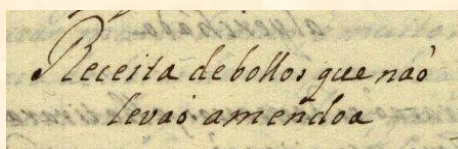 Receita debollos que naõ
levaõ amendoa